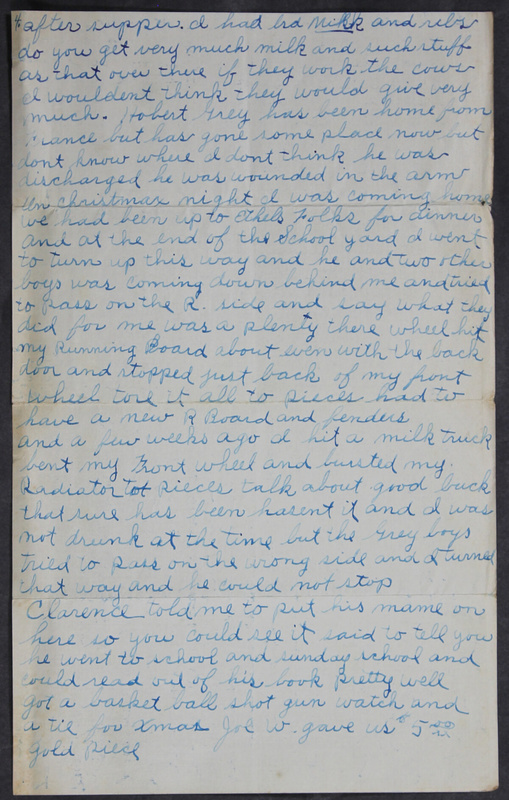 after supper. I had brd Milk and ribs
do you get very much milk and such stuff
as that over there if they work the cows
I wouldent think they would give very
much. Hobert Grey has been home from
France but has gone some place now but
dont know where I dont think he was
discharged he was wounded in the arm
on christmax night I was coming home
we had been up to Ethels Folks for dinner
and at the end of the School yard I went
to turn up this way and he and two other
boys was coming down behind me and tried
to pass on the R. side and say what they
did for me was a plenty there wheel hit
my Running Board about even with the back
door and stopped just back of my front
wheel tore it all to pieces had to
have a new R Board and fenders
and a few weeks ago I hit a milk truck
bent my Front wheel and bursted my
Radiator tot pieces talk about good luck
that sure has been hasent it and I was
not drunk at the time but the Grey boys
tried to pass on the wrong side and I turned
that way and he could not stop
Clarence told me to put his mame on
here so you could see it said to tell you
he went to school and sunday school and
could read out of his book pretty well
got a basket ball shot gun watch and
a tie for Xmas Joe W. gave us $5.00
gold piece